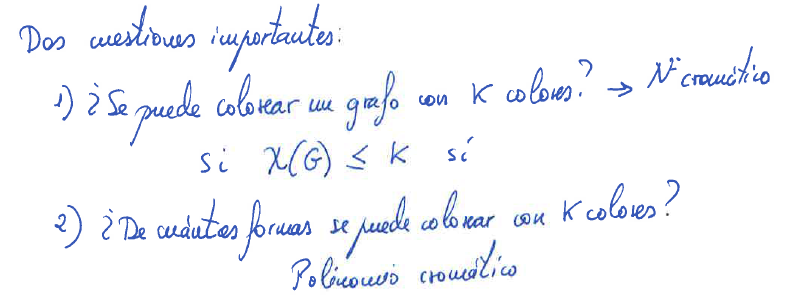 Dos cuestiones importantes:
1) ¿Se puede colorear un grafo con K colores? → Nº cromático
si χ(G) ≤ K sí
2) ¿De cuántas formas se puede colorear con K colores?
Polinomio cromático